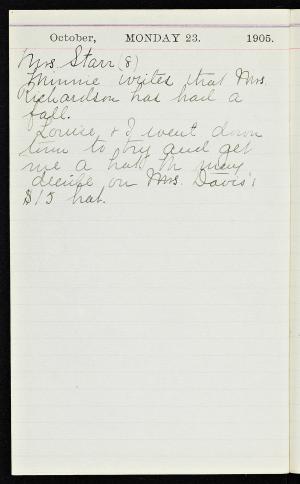 October, MONDAY 23. 1905.
Mrs. Starr (8)
Minnie writes that Mrs.
Richardson has had a
fall.
Louise & I went down
town to try and get
me a hat. May
decide on Mrs. Davis's
$15 hat.